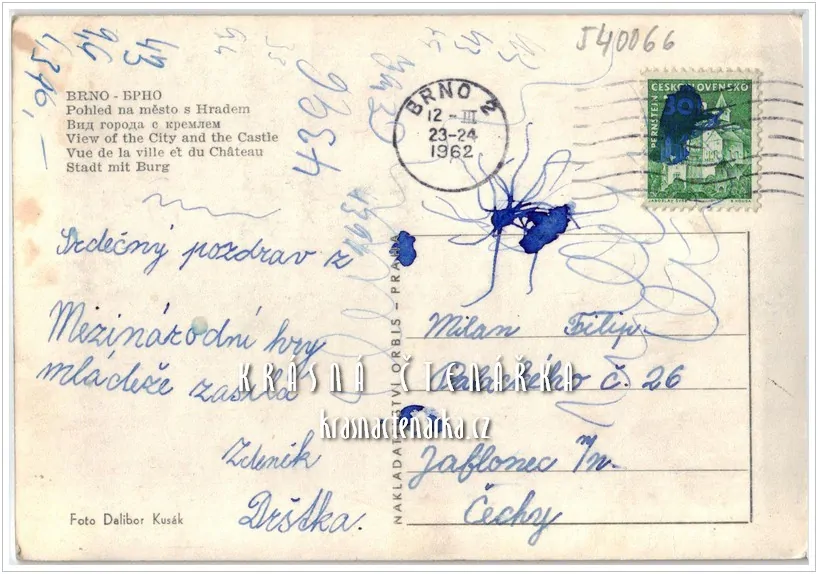 540066
43
96
4396,-
439
BRNO - БРНО
Pohled na město s Hradem
Вид города с кремлем
View of the City and the Castle
Vue de la ville et du Château
Stadt mit Burg
BRNO 2
12 - III
23-24
1962
ČESKOSLOVENSKO
PERNŠTEJN
30
Srdečný pozdrav z
Mezinárodní hry
mládeže zasílá
Zdeněk
Drštka.
Foto Dalibor Kusák
NAKLADATELSTVÍ ORBIS - PRAHA
Milan Filip.
Palackého č. 26
Jablonec n/N.
Čechy
KRÁSNÁ ČTENÁŘKA
krasnactenarka.cz